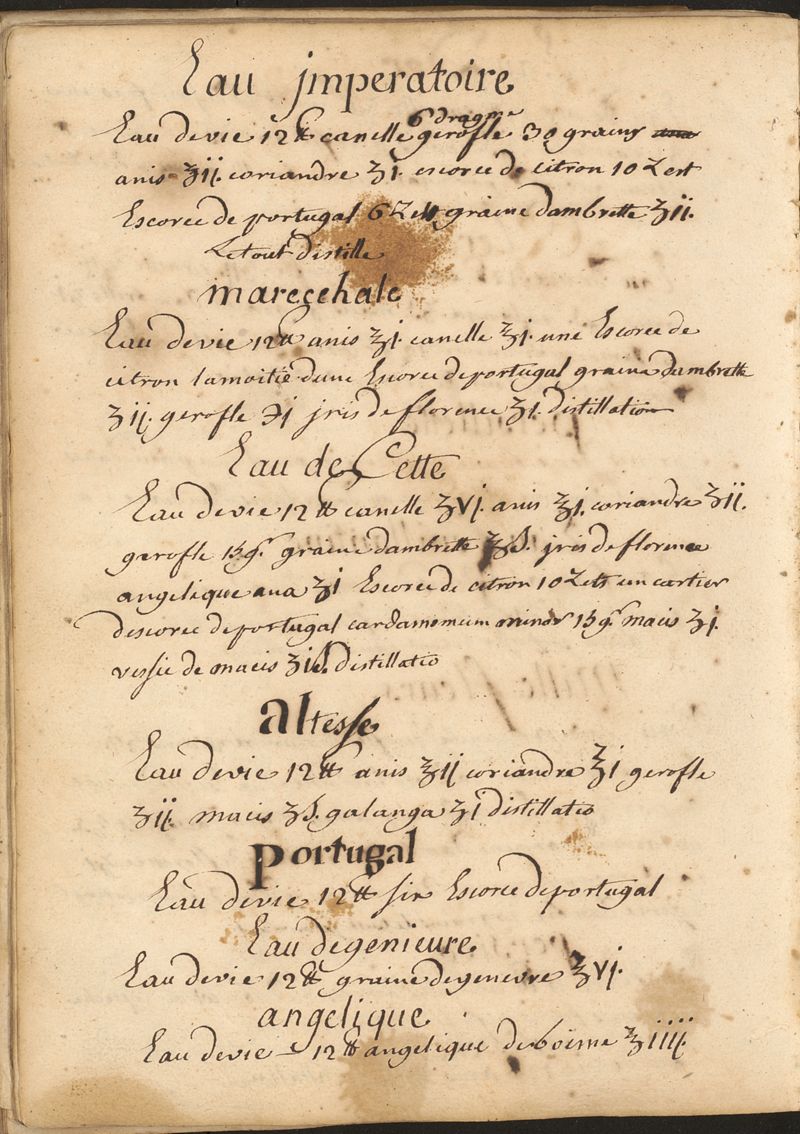 Eau jmperatoire
Eau devie 12 ℔ canelle 6 dragme gerofle 30 grains
anis ℥ij. coriandre ℥j. escorce de citron 10 Zest
Escorce de portugal 6 Zest graine dambrette ℥ij.
Letout distille
marecchale
Eau devie 12 ℔ anis ℥j. canelle ℥j. une Escorce de
citron lamoitié dune Escorce deportugal graine dambrette
℥ij. gerofle ℈j jris de florence ℥j. distillation
Eau de Cette
Eau devie 12 ℔ canelle ℥vj. anis ℥j. coriandre ℥ij.
gerofle 15 gr. graine dambrette ℥ß. jris de florence
angelique ana ℥j Escorce de citron 10 Zests un cartier
descorce deportugal cardamomum minor 15 gr. macis ℥j.
vessie de macis ℥iß. distillatio
altesse
Eau devie 12 ℔ anis ℥ij coriandre ℥j gerofle
℥ij. macis ℥ß. galanga ℥j distillatio
portugal
Eau devie 12 ℔ six Escorce deportugal
Eau degenieure
Eau devie 12 ℔ graine degenevre ℥vj.
angelique
Eau devie - 12 ℔ angelique de boëme ℥iiij.